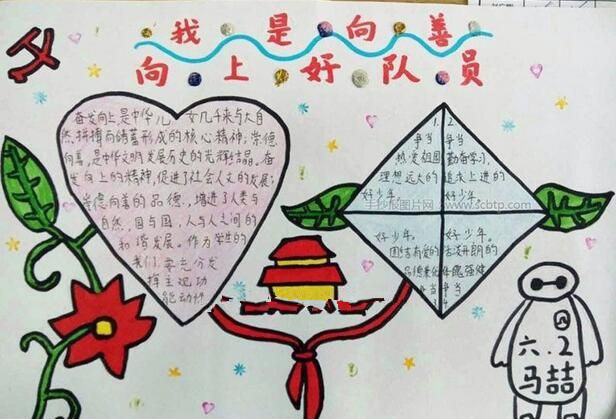 我是向善
向上好队员
奋发向上是中华儿女几千来与大自
然拼搏而储蓄形成的核心精神,崇德
向善,是中华文明发展历史的光辉结晶,奋
发向上的精神,促进了社会人文的发展;
崇德向善的品德,增进了人类与
自然,国与国,人与人之间的
和谐发展。作为学生的
我们,要充分发
挥主观功
能动性
1.
争当
热爱祖国
理想远大的
好少年。
2
争当
勤奋学习,
追求上进的
好少年。
好少年。
团结友爱的
品德兼优
争当
3
好少年。
活泼开朗的
体魄强健
争当
4
手抄报图片网 www.scbtp.com
六.2
马喆